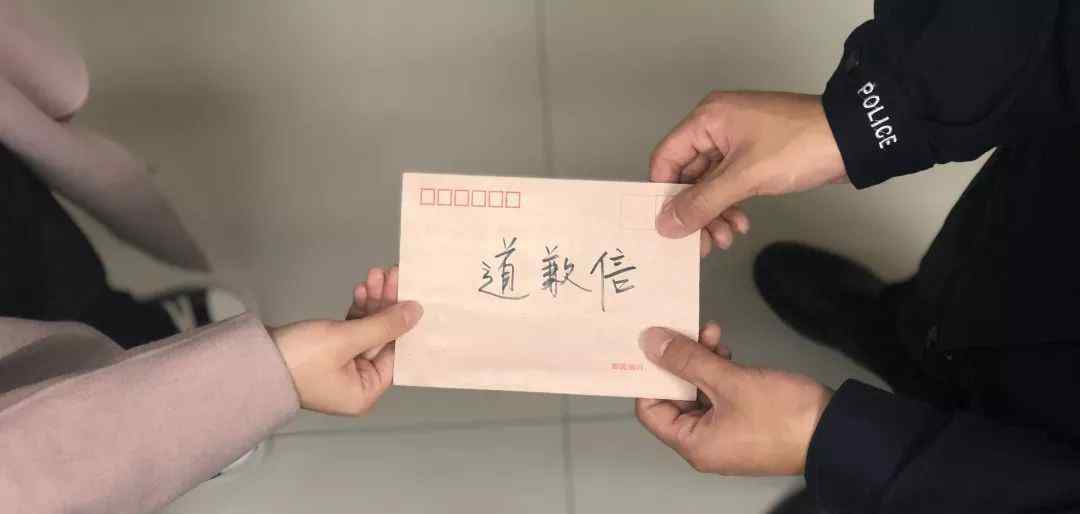 POLICE
道歉信